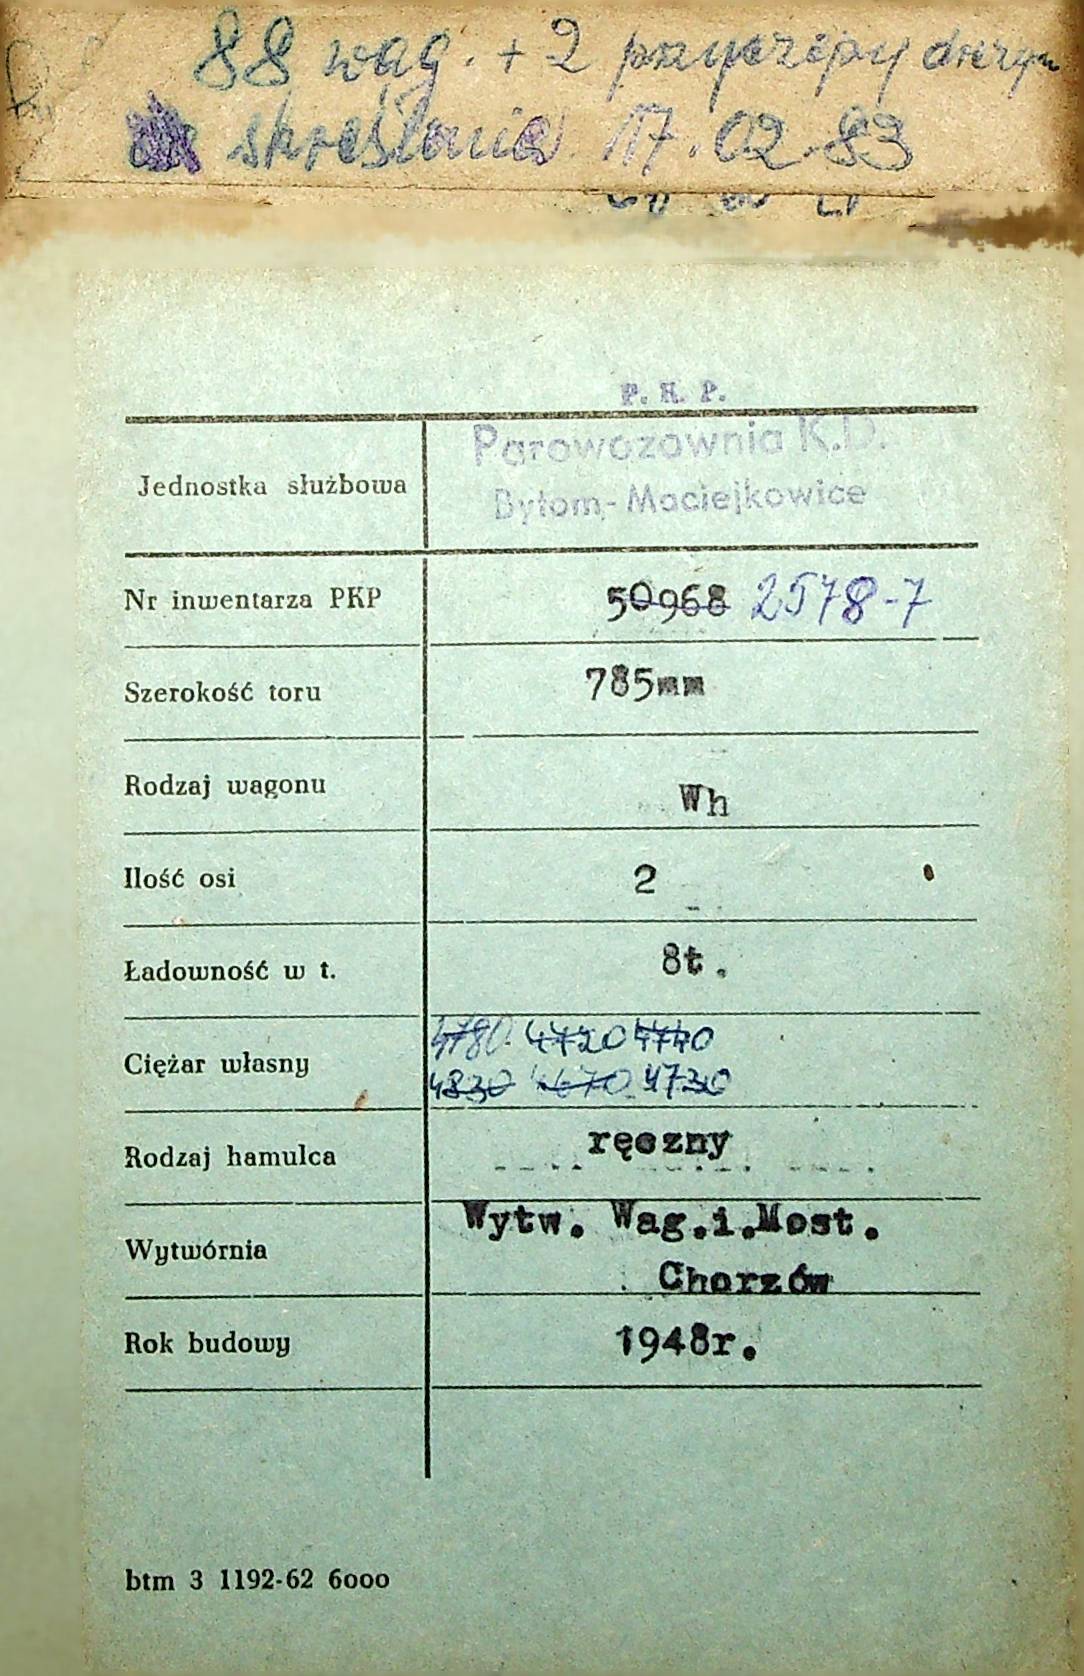 88 wag. + 2 przyczepy drezyn
skreślenia 17.02.83
P. K. P.
Parowozownia K.D.
Jednostka służbowa
Bytom-Maciejkowice
Nr inwentarza PKP 50968 2578-7
Szerokość toru 785mm
Rodzaj wagonu Wh
Ilość osi 2
Ładowność w t. 8t.
4780 4720 4740
Ciężar własny
4830 4670 4730
Rodzaj hamulca ręczny
Wytw. Wag.i.Most.
Wytwórnia
Chorzów
Rok budowy 1948r.
btm 3 1192-62 6000